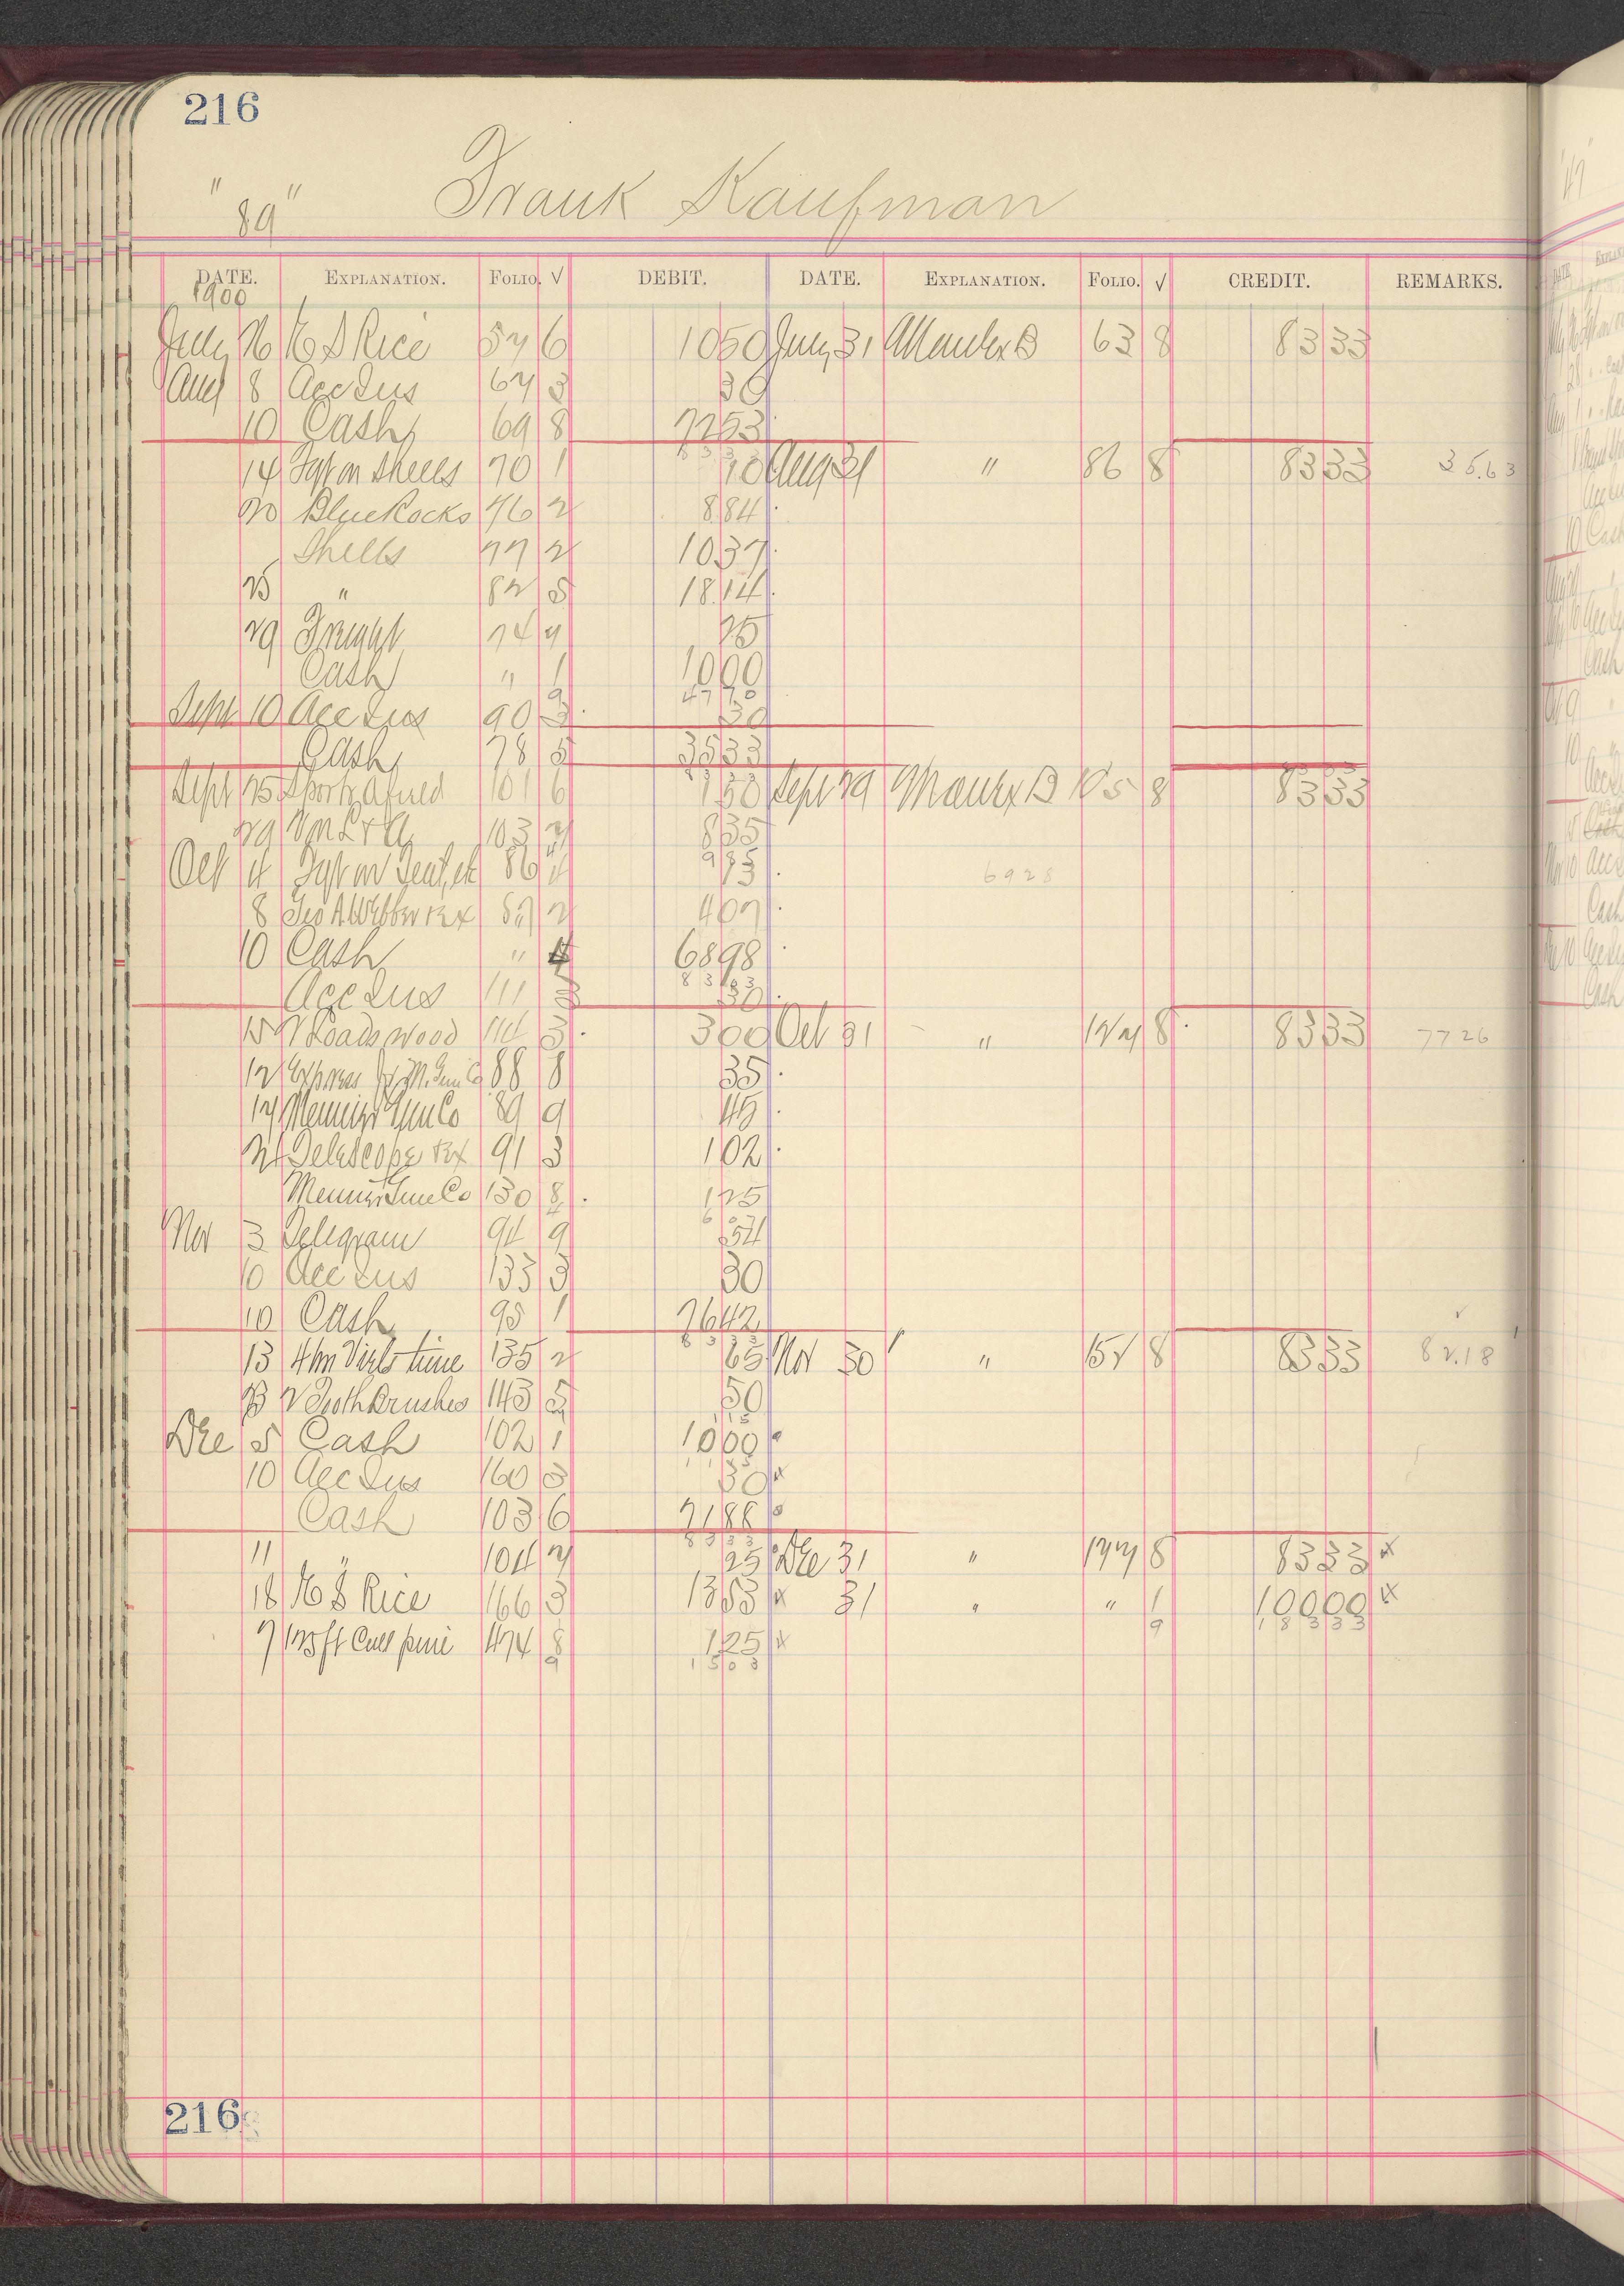 216
" 89 " Frank Kaufman
DATE. EXPLANATION. FOLIO. √ DEBIT. DATE. EXPLANATION. FOLIO. √ CREDIT. REMARKS.
1900
July 26 Rice 57 6 10 50 July 31 63 8 83 33
Aug 8 Acc Ins 67 3 30
10 Cash 69 8 72 53
14 Fgt on Shells 70 1 10 Aug 31 " 86 8 83 33 35.63
20 Blue Rocks 76 2 8 84
Shells 77 2 10 37
25 " 82 5 18 14
29 Freight 74 9 25
Cash " 1 10 00
47 70
Sept 10 Acc Ins 90 3 30
Cash 78 5 35 33
Sept 25 Sports Afield 101 6 1 50 Sept 29 8 83 33
29 103 7 8 35
Oct 4 Fgt on Tent, etc 86 13
6928
8 Geo A Webber 87 2 4 07
10 Cash " 4 68 98
83 63
Acc Ins 111 3 30
15 2 Loads wood 114 3 3 00 Oct 31 " 127 8 83 33 77 26
12 Express 88 8 35
17 Gun Co 89 9 45
24 Telescope 91 3 1 02
Gun Co 130 8 1 25
Nov 3 Telegram 94 9 54
10 Acc Ins 133 3 30
10 Cash 95 1 76 42
83 33
13 time 135 2 65 Nov 30 " 152 8 83 33 82.18
23 2 Tooth Brushes 143 5 50
Dec 5 Cash 102 1 10 00
10 Acc Ins 160 3 30
Cash 103 6 71 88
83 33
11 " 104 7 25 Dec 31 " 177 8 83 33
18 Rice 166 3 13 53 31 " " 1 100 00
9 183 33
7 125 ft Cull pine 474 8 1 25
9 15 03
216